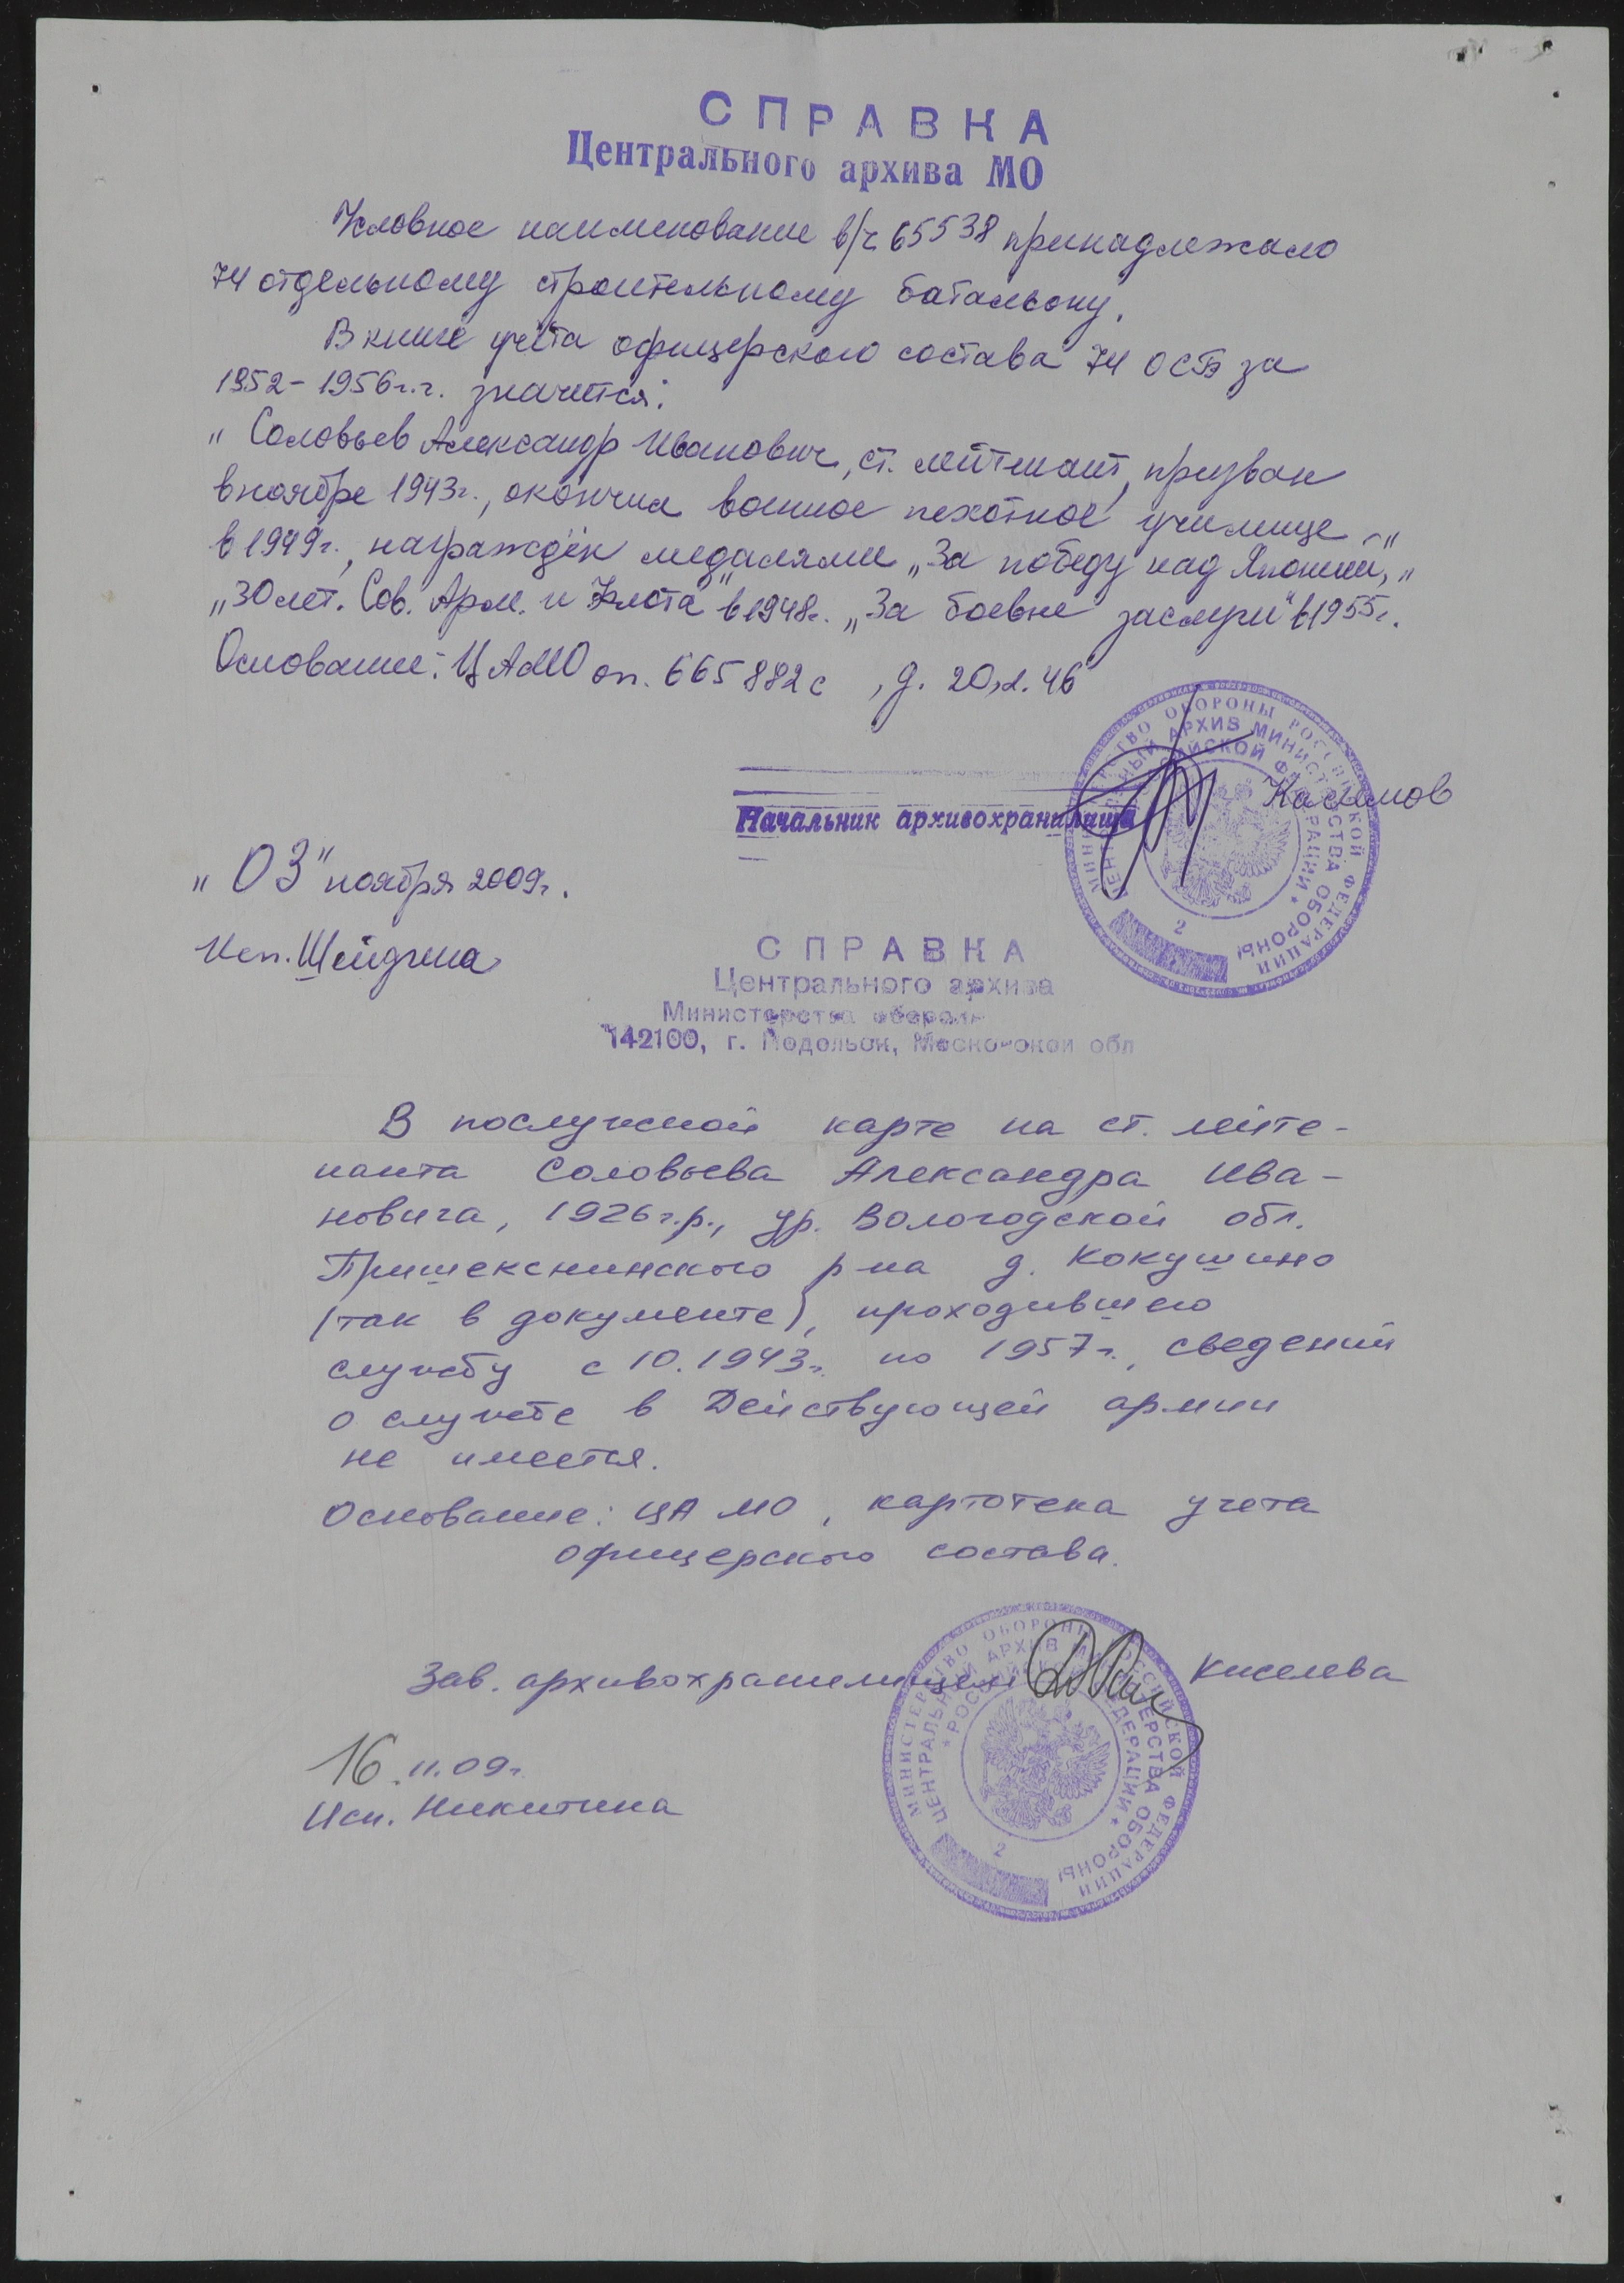 СПРАВКА
Центрального архива МО
Условное наименование в/ч 65538 принадлежало
74 отдельному строительному батальону.
В книге учёта офицерского состава 74 ОСБ за
1952-1956г.г. значится:
„Соловьев Александр Иванович, ст. лейтенант, призван
в ноябре 1943г., окончил военное пехотное училище
в 1949г., награждён медалями „За победу над Японией",
„30 лет. Сов. Арм. и Флота" в 1948г. „За боевые заслуги" в 1955г."
Основание: ЦАМО оп. 665882с, д. 20, л. 46
Начальник архивохранилища Касимов
„03" ноября 2009г.
Исп.
МИНИСТЕРСТВО ОБОРОНЫ РОССИЙСКОЙ ФЕДЕРАЦИИ
ЦЕНТРАЛЬНЫЙ АРХИВ МИНИСТЕРСТВА ОБОРОНЫ
РОССИЙСКОЙ ФЕДЕРАЦИИ *
2
СПРАВКА
Центрального архива
Министерства обороны
142100, г. Подольск, Московской обл
В послужной карте на ст. лейте-
нанта Соловьева Александра Ива-
новича, 1926г.р., ур. Вологодской обл.
Пришекснинского р-на д. Кокушино
(так в документе), проходившего
службу с 10.1943г. по 1957г., сведений
о службе в Действующей армии
не имеется.
Основание: ЦА МО, картотека учета
офицерского состава.
Зав. архивохранилищем Киселева
16.11.09г.
Исп. Никитина
МИНИСТЕРСТВО ОБОРОНЫ РОССИЙСКОЙ ФЕДЕРАЦИИ
ЦЕНТРАЛЬНЫЙ АРХИВ МИНИСТЕРСТВА ОБОРОНЫ
* РОССИЙСКОЙ ФЕДЕРАЦИИ *
2